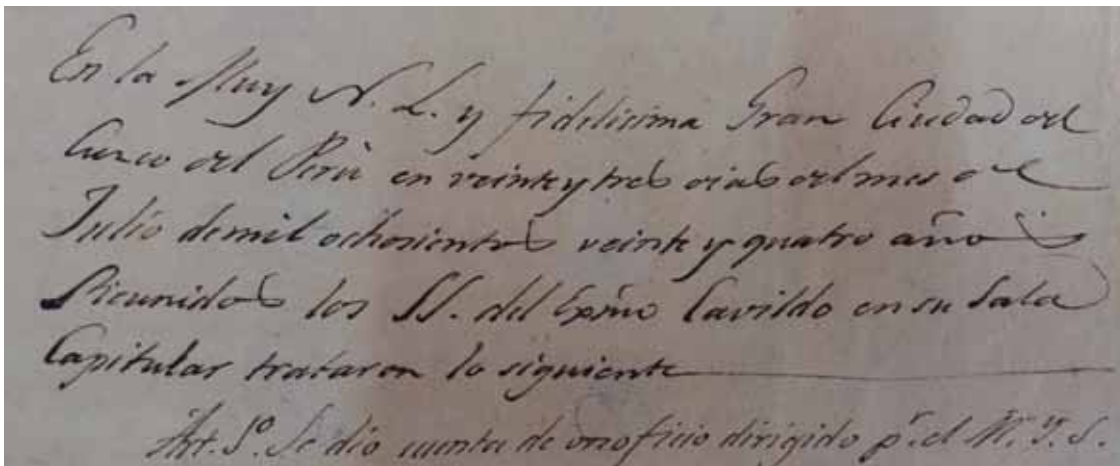 En la Muy N. L. y fidelisima Gran Ciudad del
Cuzco del Perú en veinte y tres dias del mes de
Julio de mil ochosientos veinte y quatro años
Reunidos los SS. del Exmo Cavildo en su Sala
Capitular trataron lo siguiente
Art. Se dio cuenta de un oficio dirigido pr. el M. Y. S.